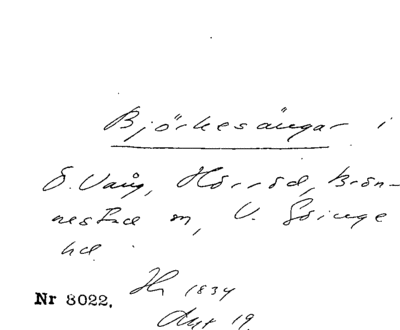 Björkesängar i
Ö. Vång, Hörröd, Brön-
nestad m, V. Göinge
hd.
Nr 8022. Hr 1834
Avt 19.